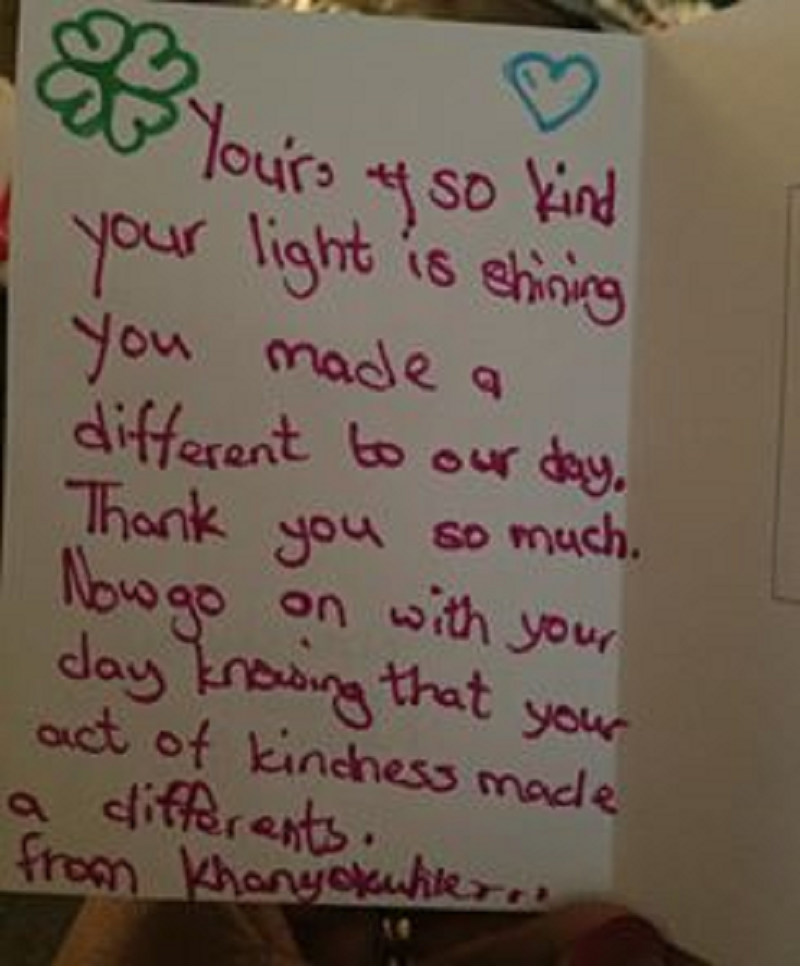 You're so kind
your light is shining
you made a
different to our day.
Thank you so much.
Now go on with your
day knowing that your
act of kindness made
a differents.
from